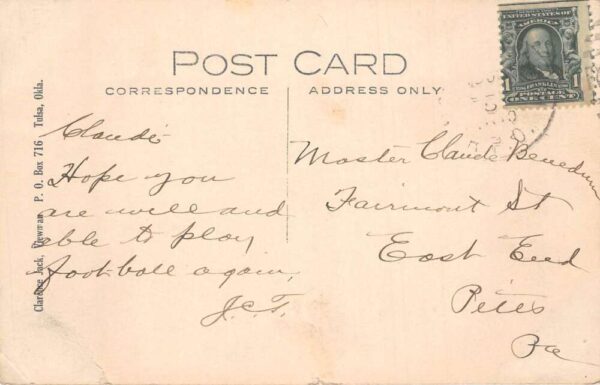 POST CARD
CORRESPONDENCE
ADDRESS ONLY
UNITED STATES OF
AMERICA
1 1
POSTAGE
ONE CENT
Claude
Hope you
are well and
able to play
football again,
J.C.T.
Master Claude Benedum
Fairmont St
East End
Pitts
Pa
Jack, Viewman P. O. Box 716 Tulsa, Okla.